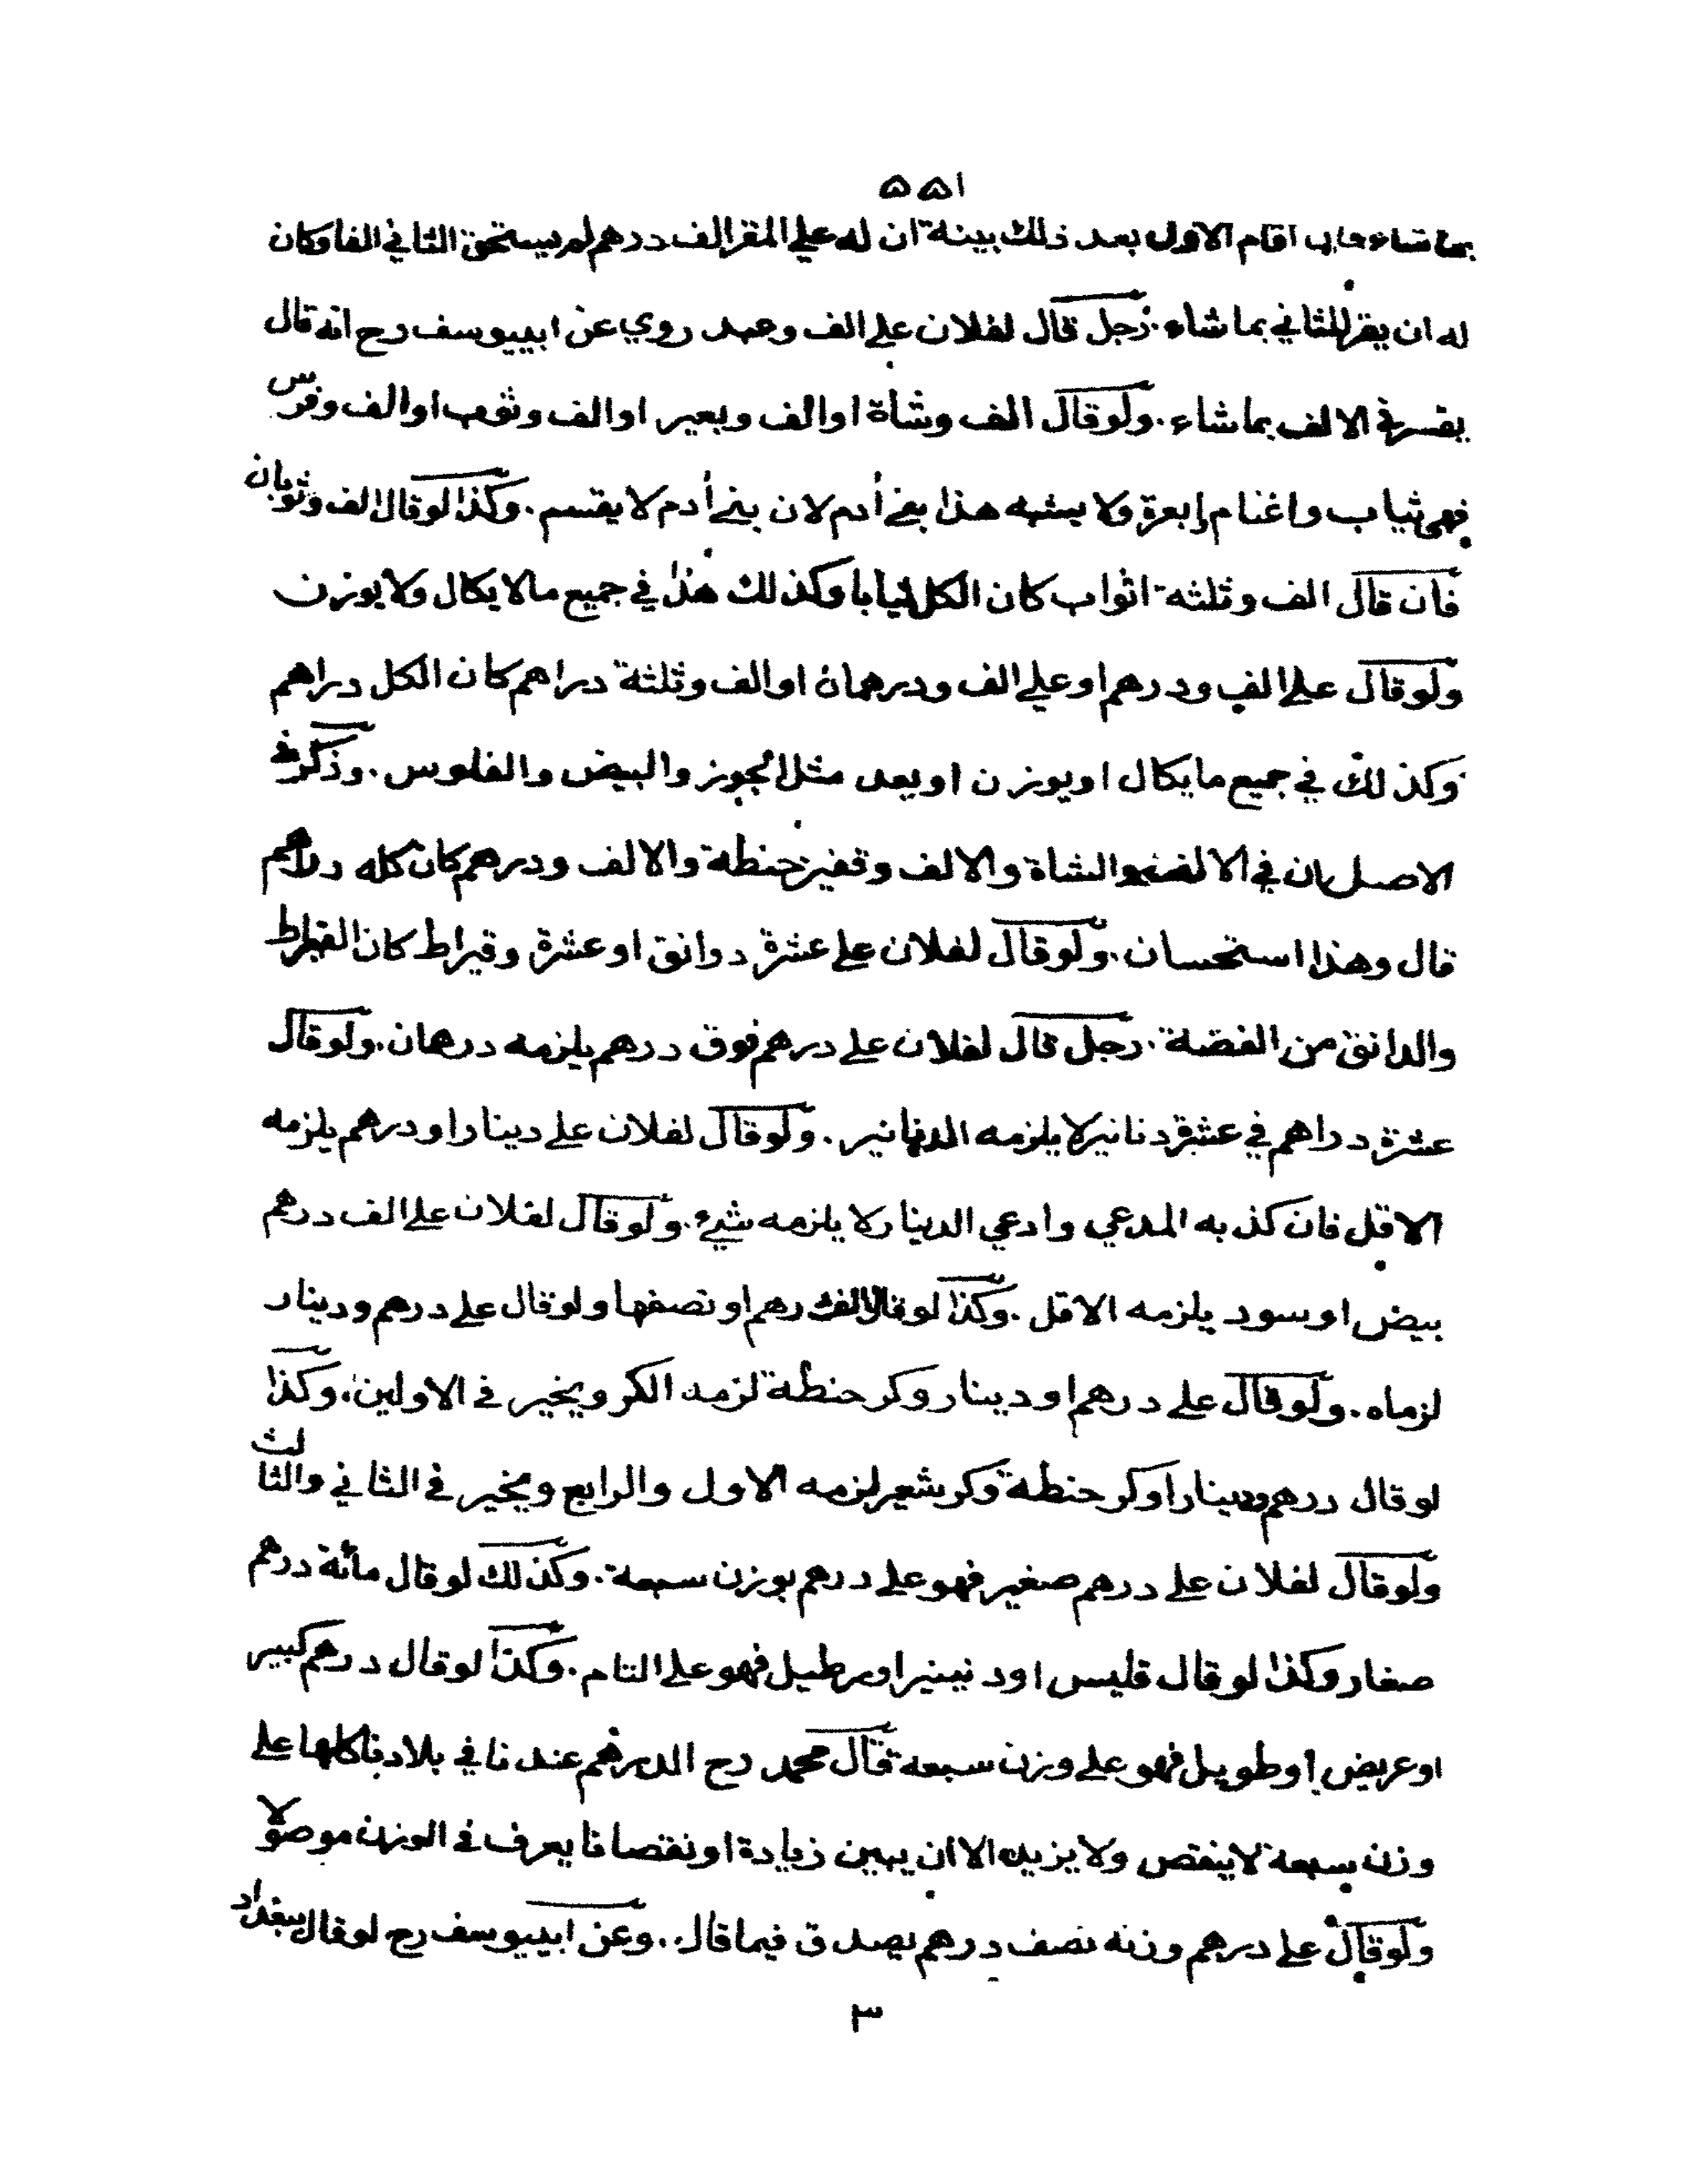 ٥٥١
بما شاء فان اقام الاول بعد ذلك بينة ان له علي المقر الف درهم لم يستحق الثاني الفا وكان
له ان يقر للثاني بما شاء . رجل قال لفلان علي الف وعبد روي عن ابييوسف رح انه قال
يفسر في الالف بما شاء . ولو قال الف وشاة او الف وبعير او الف وثوب او الف وفرس
فهي ثياب واغنام وابعرة ولا يشبه هذا بني أدم لان بني أدم لا يقسم . وكذا لو قال الف وثوبان
فان قال الف وثلثة اثواب كان الكل ثيابا وكذلك هذا في جميع مالا يكال ولا يوزن
ولو قال علي الف ودرهم او علي الف ودرهمان او الف وثلثة دراهم كان الكل دراهم
وكذلك في جميع ما يكال او يوزن او يعد مثل الجوز والبيض والفلوس . وذكر في
الاصل ان في الالف والشاة والالف وقفيز حنطة والالف ودرهم كان كله دراهم
قال وهذا استحسان . ولو قال لفلان علي عشرة دوانق او عشرة وقيراط كان القيراط
والدانق من الفضة . رجل قال لفلان علي درهم فوق درهم يلزمه درهمان . ولو قال
عشرة دراهم في عشرة دنانير لا يلزمه الدنانير . ولو قال لفلان علي دينار او درهم يلزمه
الاقل فان كذبه المدعي وادعي الدينار لا يلزمه شيء . ولو قال لفلان علي الف درهم
بيض او سود يلزمه الاقل . وكذا لو قال الف درهم او نصفها ولو قال علي درهم ودينار
لزماه . ولو قال علي درهم او دينار وكر حنطة لزمه الكر ويخير في الاولين . وكذا
لو قال درهم ودينار او كر حنطة وكر شعير لزمه الاول والرابع ويخير في الثاني والثالث
ولو قال لفلان علي درهم صغير فهو علي درهم بوزن سبعة . وكذلك لو قال مائة درهم
صغار وكذا لو قال فليس او دنينير او رطيل فهو علي التام . وكذا لو قال درهم كبير
او عريض او طويل فهو علي وزن سبعة قال محمد رح الدرهم عندنا في بلادنا كلها علي
وزن سبعة لا ينقص ولا يزيد الا ان يبين زيادة او نقصانا يعرف في الوزن موصولا
ولو قال علي درهم وزنه نصف درهم يصدق فيما قال . . وعن ابييوسف رح لو قال ببغداد
٣